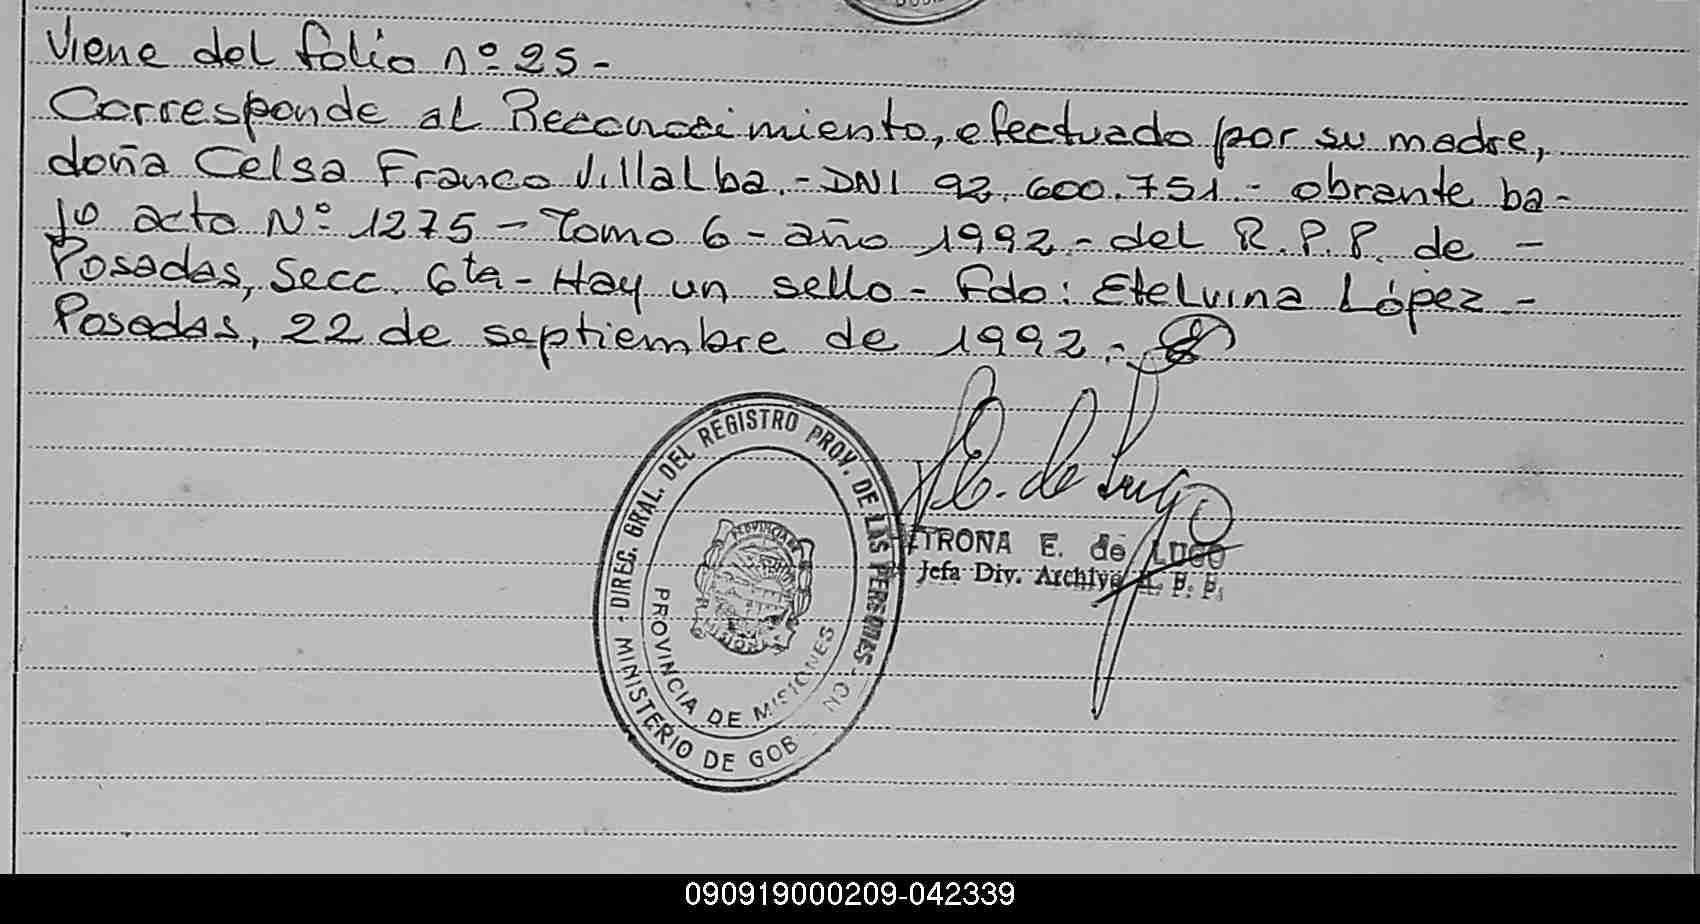 Viene del folio nº 25-
Corresponde al Reconocimiento, efectuado por su madre,
doña Celsa Franco Villalba.- DNI 92.600.751.- obrante ba-
jo acta Nº 1275 - Tomo 6 - año 1992 - del R.P.P. de -
Posadas, Secc. 6ta - Hay un sello - Fdo: Etelvina López -
Posadas, 22 de septiembre de 1992.-
DIREC. GRAL. DEL REGISTRO PROV. DE LAS PERSONAS
MINISTERIO DE GOB
PROVINCIA DE MISIONES
E. de Lugo
TRONA E. de LUGO
Jefa Div. Archivo R. P. P.
090919000209-042339